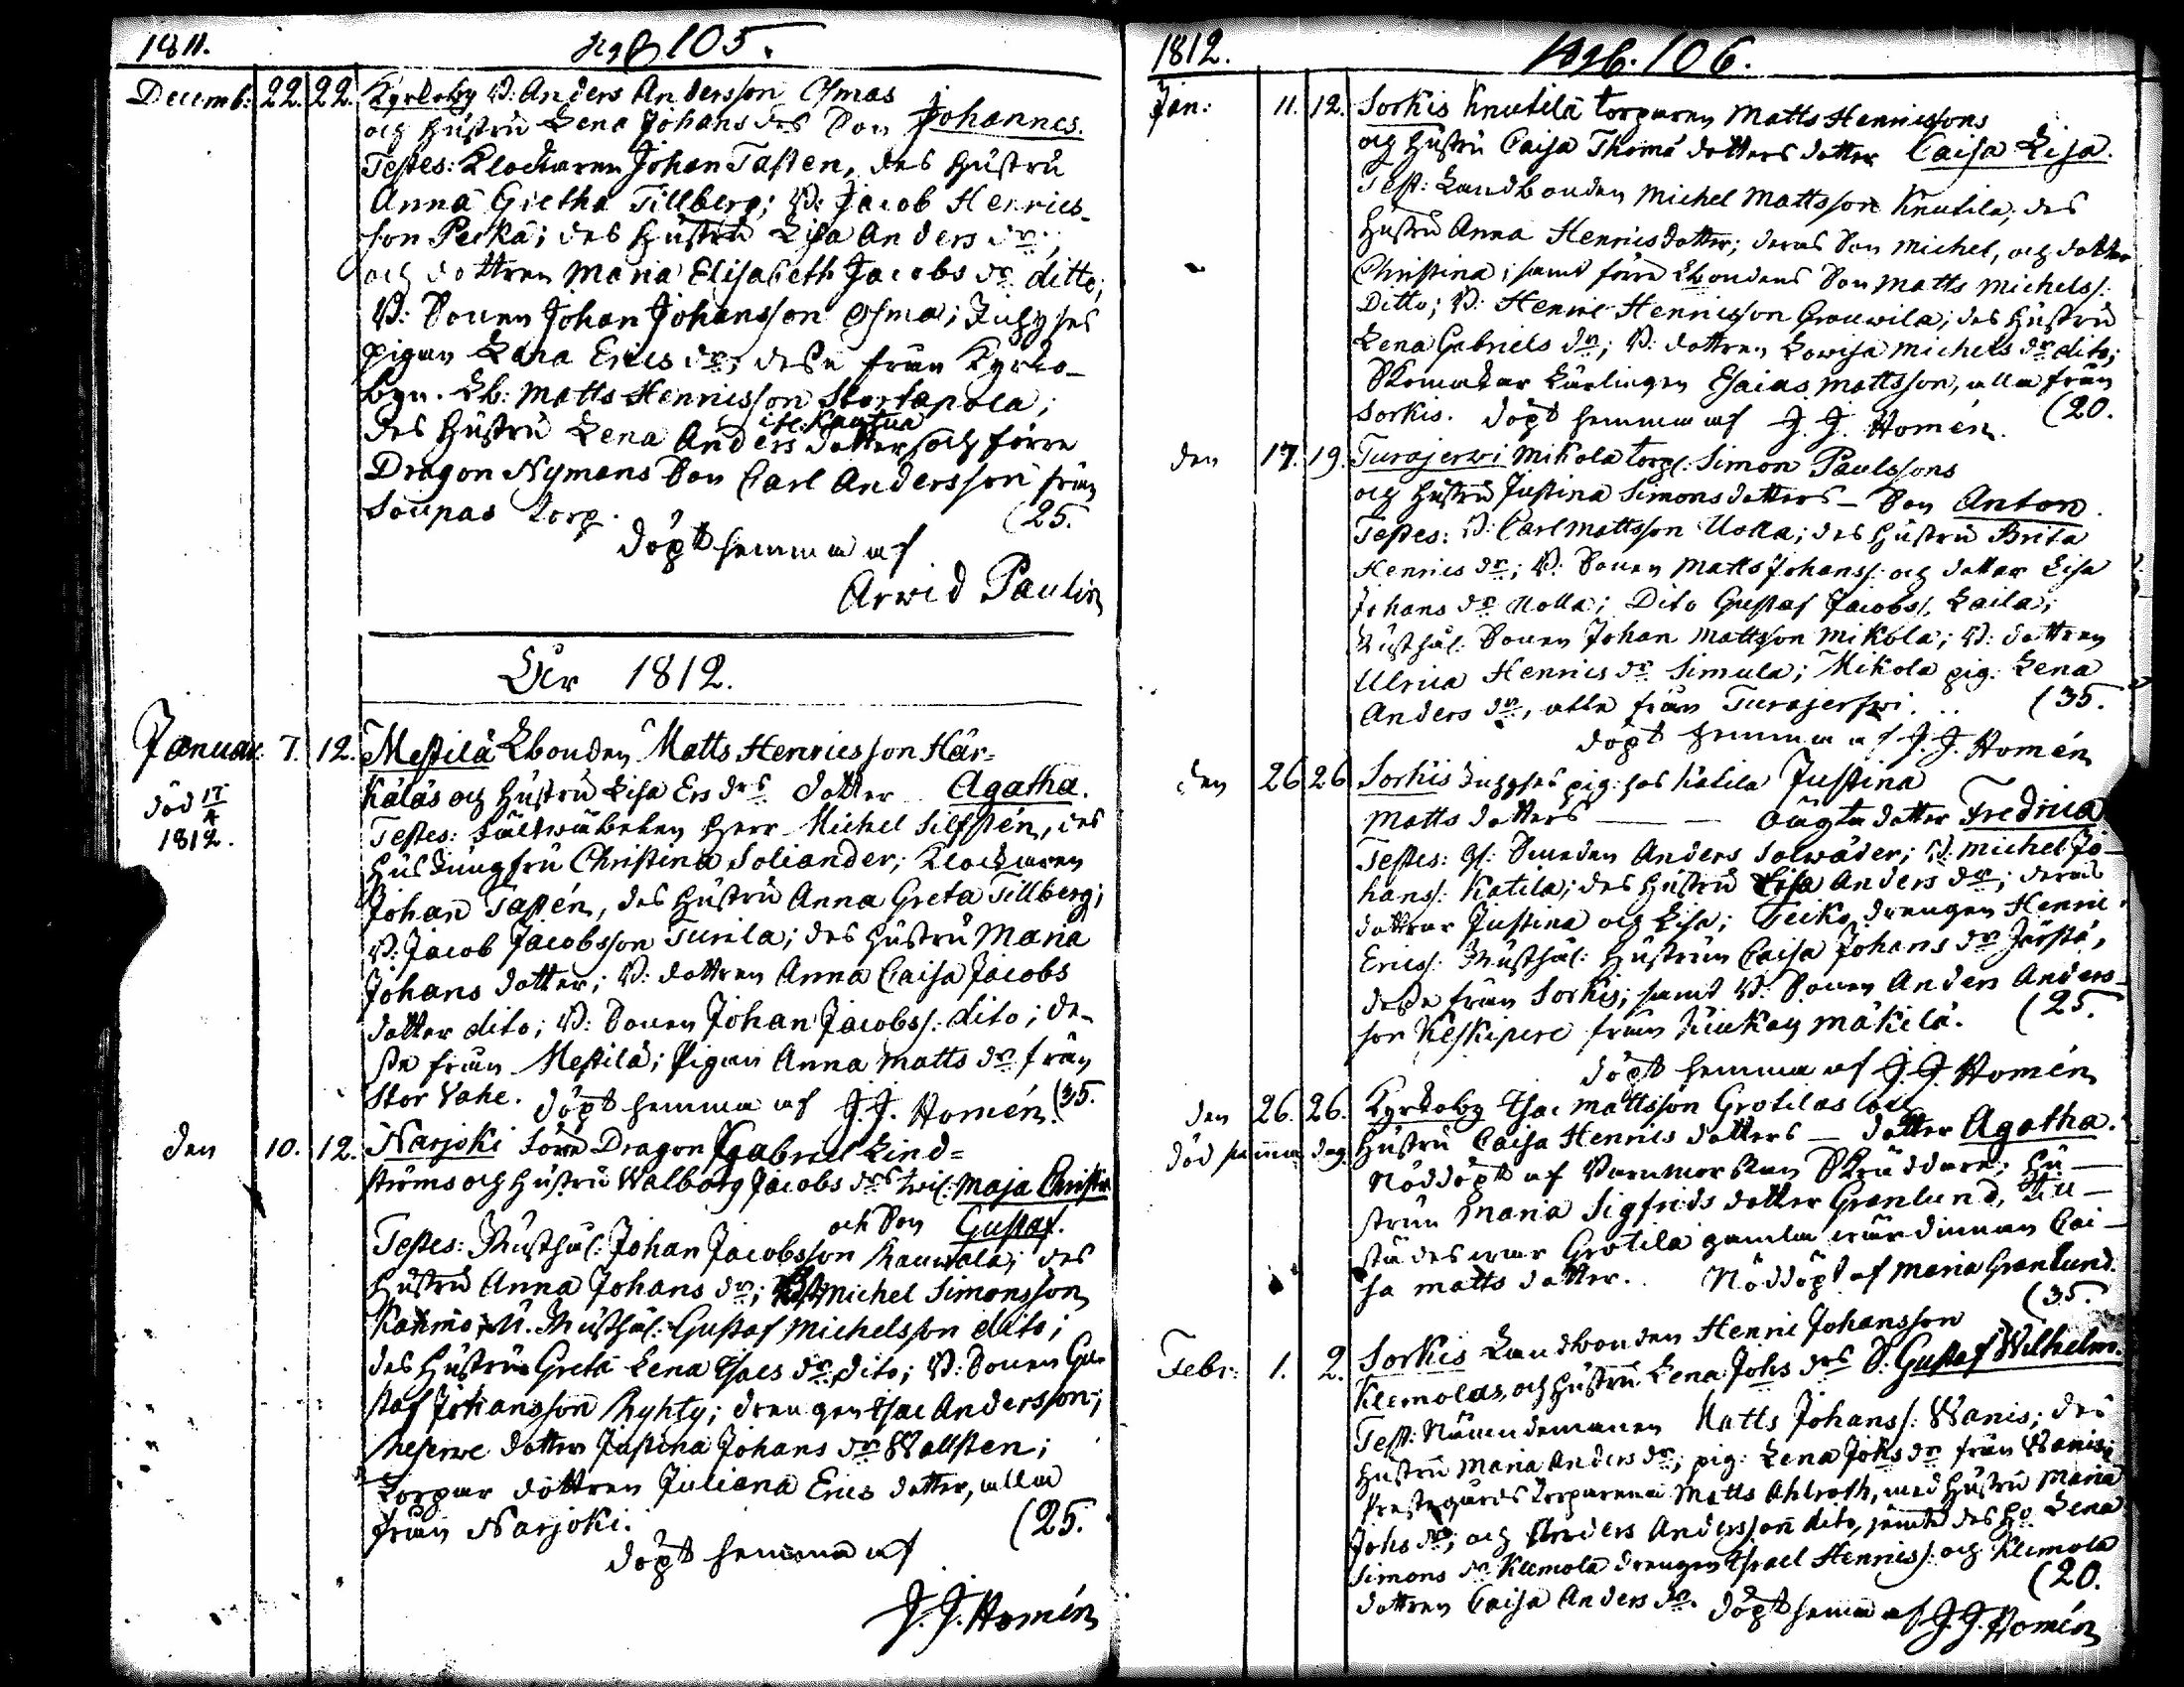 1811.
pag 105.
Decemb: 22. 22. Kyrkoby B: Anders Andersson Ojmas
och hustru Lena Johans drs Son Johannes.
Testes: Klockaren Johan Tasten, des hustru
Anna Gretha Tillberg; B: Jacob Henrics-
son Pecka; des hustru Lisa Anders dr;
och dottren Maria Elisabeth Jacobs dr ditto;
B: Sonen Johan Johansson Ojma; Inhyses
pigan Lena Erics dr; desse från Kyrko-
byn. Lb: Matts Henricsson Stortapola;
des hustru Lena Anders dotter och förre
Dragon Nymans Son Carl Andersson från
Soupas Torp. (25.
döpt hemma af
Arvid Paulin
År 1812.
Januar: 7. 12. Mestilä Lbonden Matts Henricsson Här-
död 17/4 1812.
käläs och hustru Lisa Ers drs dotter Agatha.
Testes: Fältwäbelen Herr Michel Silfstén, des
Husjungfru Christina Soliander; Klockaren
Johan Tastén, des hustru Anna Greta Tillberg;
B: Jacob Jacobsson Turila; des hustru Maria
Johans dotter; B: dottren Anna Caisa Jacobs
dotter dito; B: Sonen Johan Jacobss: dito; de-
sse från Mestilä; Pigan Anna Matts dr från
Stor Vahe. döpt hemma af J. J. Homén. (35.
den 10. 12. Narjoki förre Dragon Gabriel Lind-
ströms och hustru Walborg Jacobs drs twil: Maja Christina
och Son Gustaf.
Testes: Rusthål: Johan Jacobsson Rauvola; des
hustru Anna Johans dr; Michel Simonsson
Rusthål: Gustaf Michelsson dito;
des hustru Greta Lena Isacs dr dito; B: Sonen Gu-
staf Johansson Ryhty; drengen Isac Andersson;
Reserve dotter Justina Johans dr Wallsten;
Torpar dottren Juliana Erics dotter, alla
från Narjoki. (25.
döpt hemma af
J. J. Homén
1812.
pag. 106.
Jan: 11. 12. Sorkis Knutila torparen Matts Henricssons
och hustru Caisa Thomä dotters dotter Caisa Lisa.
Test: Landbonden Michel Mattsson Knutila; des
hustru Anna Henrics dotter; deras Son Michel, och dotter
Christina; samt förre Lbondens Son Matts Michelss:
Ditto; B: Henric Henricsson Grouwila; des hustru
Lena Gabriels dr; B: dottren Lowisa Michels dr dito;
Skomakar Lärlingen Esaias Mattsson, alla från
Sorkis. döpt hemma af J. J. Homén. (20.
den 17. 19. Turajerwi Mikola torp: Simon Paulssons
och hustru Justina Simons dotters – Son Anton.
Testes: B: Carl Mattsson Uolla; des hustru Brita
Henrics dr; B: Sonen Matts Johanss: och dotter Lisa
Johans dr Uolla; Dito Gustaf Jacobss: Laila;
Rusthål: Sonen Johan Mattsson Mikola; B: dottren
Ulrica Henrics dr Simula; Mikola pig: Lena
Anders dr, alla från Turajerfwi. (35.
döpt hemma af J. J. Homén
den 26 26 Sorkis Inhyses pig: hos Katila Justina
Matts dotters – – oägta dotter Fredrica
Testes: Gl: Smeden Anders Solwäder; B: Michel Jo-
hanss: Katila; des hustru Lisa Anders dr; deras
dottrar Justina och Lisa; Teiko drengen Henric
Ericss: Rusthål: hustrun Caisa Johans dr Järstä,
desse från Sorkis; samt B: Sonen Anders Anders-
son Keskipere från Kiukas Mäkilä. (25.
döpt hemma af J. J. Homén
den 26. 26. Kyrkoby Isac Mattsson Grotilas och
död samma dag.
hustru Caisa Henrics dotters – dotter Agatha.
Nöddöpt af Barnmorskan Skräddare Hu-
strun Maria Sigfrids dotter Granlund, Till-
städes war Grotila gamla wärdinnan Cai-
sa Matts dotter. Nöddöpt af Maria Granlund.
(35.
Febr: 1. 2. Sorkis Landbonden Henric Johansson
Klemolas och hustru Lena Johs drs S: Gustaf Wilhelm.
Test: Nämndemannen Matts Johanss: Wanis; des
hustru Maria Anders dr; pig: Lena Johs dr från Wanis;
Prestegårds Torparena Matts Ahlroth, med hustru Maria
Johs dr; och Anders Andersson dito, jemte des H:o Lena
Simons dr Klemola drengen Israel Henricss: och Klemola
dottren Caisa Anders dr. (20.
döpt hemma af J. J. Homén